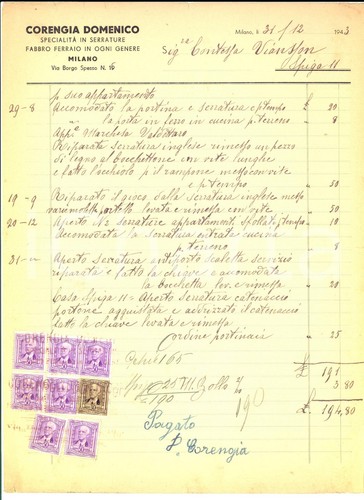 CORENGIA DOMENICO
SPECIALITÀ IN SERRATURE
FABBRO FERRAIO IN OGNI GENERE
MILANO
Via Borgo Spesso N. 16
Milano, li 31/12 1943
Sig.ra Contessa Vianson
Spiga 11
p suo appartamento
29-8 Accomodato la portina e serratura e p tempo £ 20
" la porta in ferro in cucina p terreno " 8
App.
Riparata serratura inglese rimesso un perro
di legno al bocchettone con vite lunghe
e fatto l'occhiolo p il trapone messo con vite
e p tempo " 50
19-9 Riparato il gioco dalla serratura inglese messo
molletta portello levata e rimessa con vite " 50
20-12 Aperto N.2 serrature appartament. p tempo " 10
Accomodata la serratura entrata cucina
p. terreno " 8
31- Aperto Serratura antiporto Scaletta servizio
riparata e fatto la chiave e accomodata
la bocchetta lev. e rimessa " 20
Casa Spiga 11 = Aperto Serratura catenaccio
portone aggiustata e il catenaccio
fatto la chiave levata e rimessa
ordine portinaia " 25
165
£ 191
3.80
£ 194,80
190
190
Pagato
D. Corengia